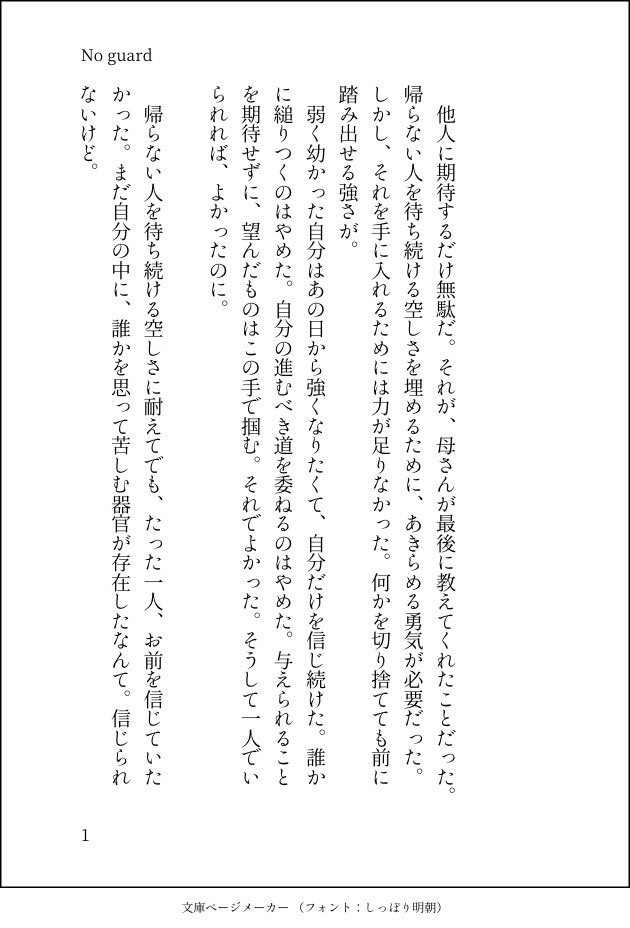 No guard
　他人に期待するだけ無駄だ。それが、母さんが最後に教えてくれたことだった。
帰らない人を待ち続ける空しさを埋めるために、あきらめる勇気が必要だった。
しかし、それを手に入れるためには力が足りなかった。何かを切り捨てても前に
踏み出せる強さが。
　弱く幼かった自分はあの日から強くなりたくて、自分だけを信じ続けた。誰か
に縋りつくのはやめた。自分の進むべき道を委ねるのはやめた。与えられること
を期待せずに、望んだものはこの手で掴む。それでよかった。そうして一人でい
られれば、よかったのに。
　帰らない人を待ち続ける空しさに耐えてでも、たった一人、お前を信じていた
かった。まだ自分の中に、誰かを思って苦しむ器官が存在したなんて。信じられ
ないけど。
1
文庫ページメーカー（フォント：しっぽり明朝）